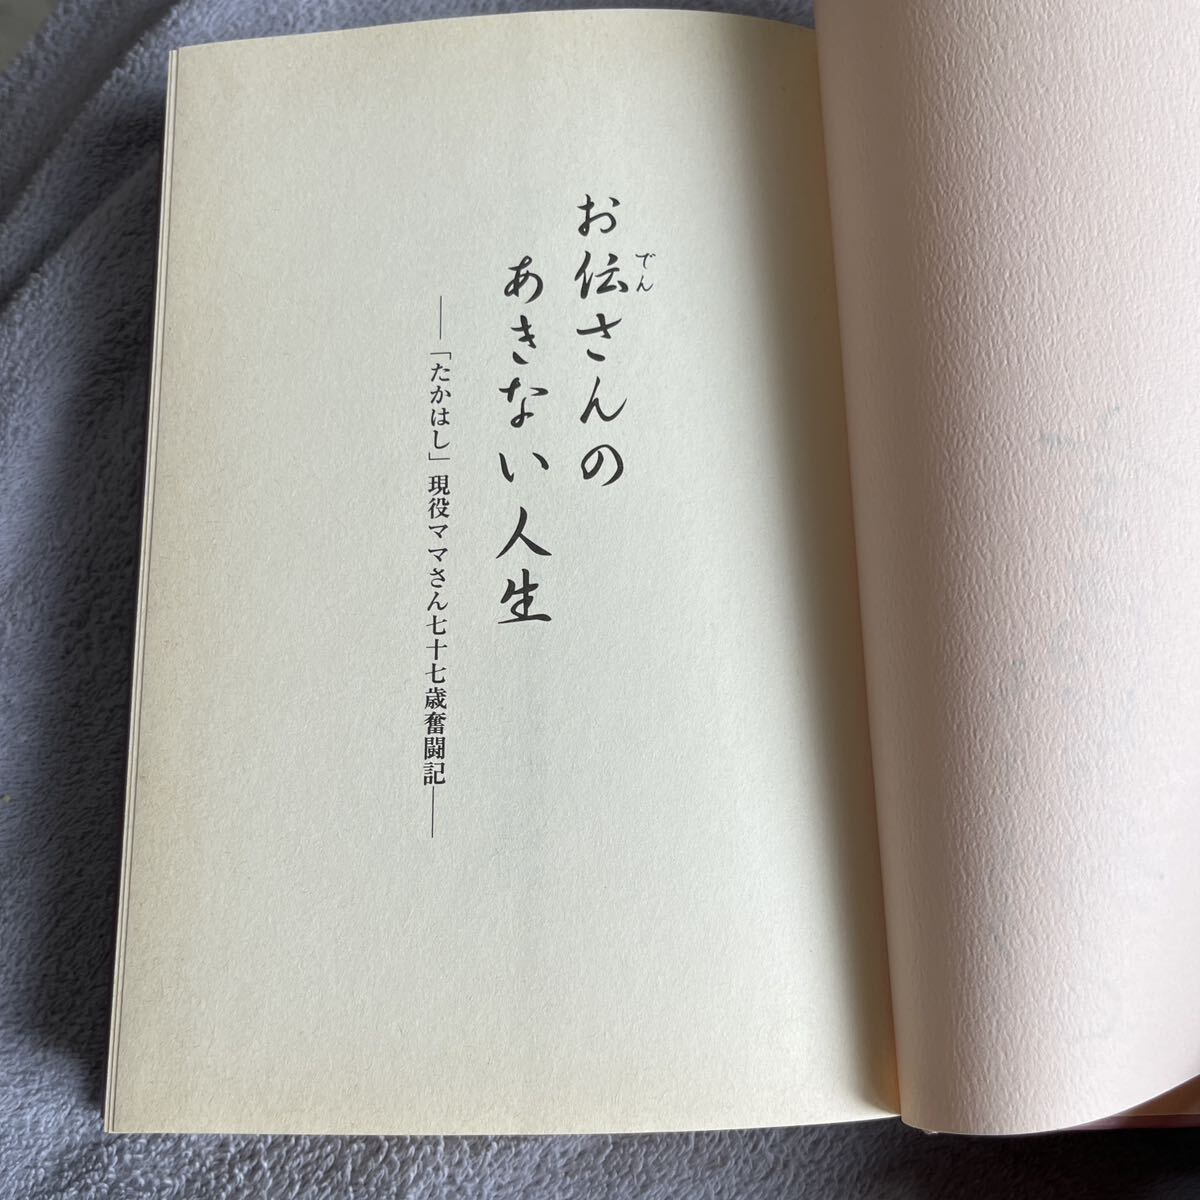 お伝さんの
でん
あきない人生
──「たかはし」現役ママさん七十七歳奮闘記──